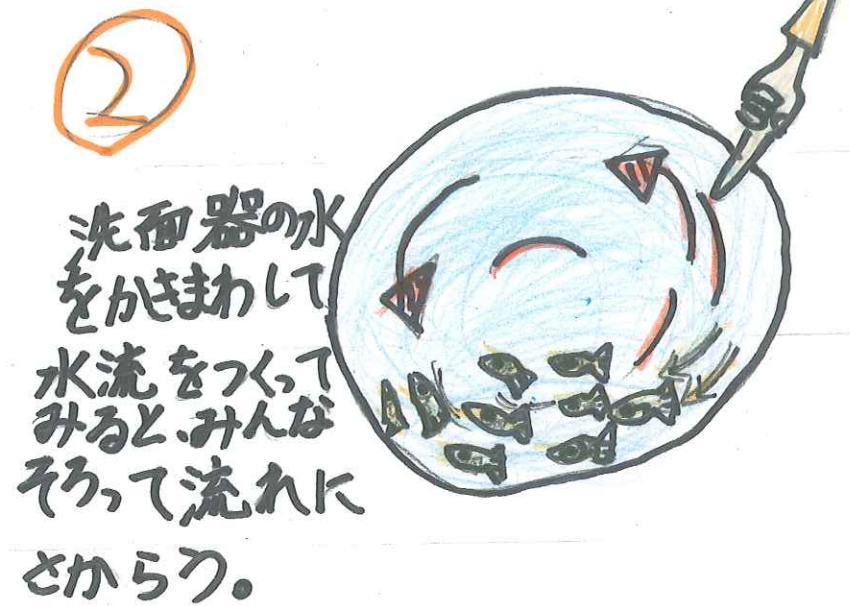 2
洗面器の水
をかきまわして
水流をつくって
みると、みんな
そろって流れに
さからう。